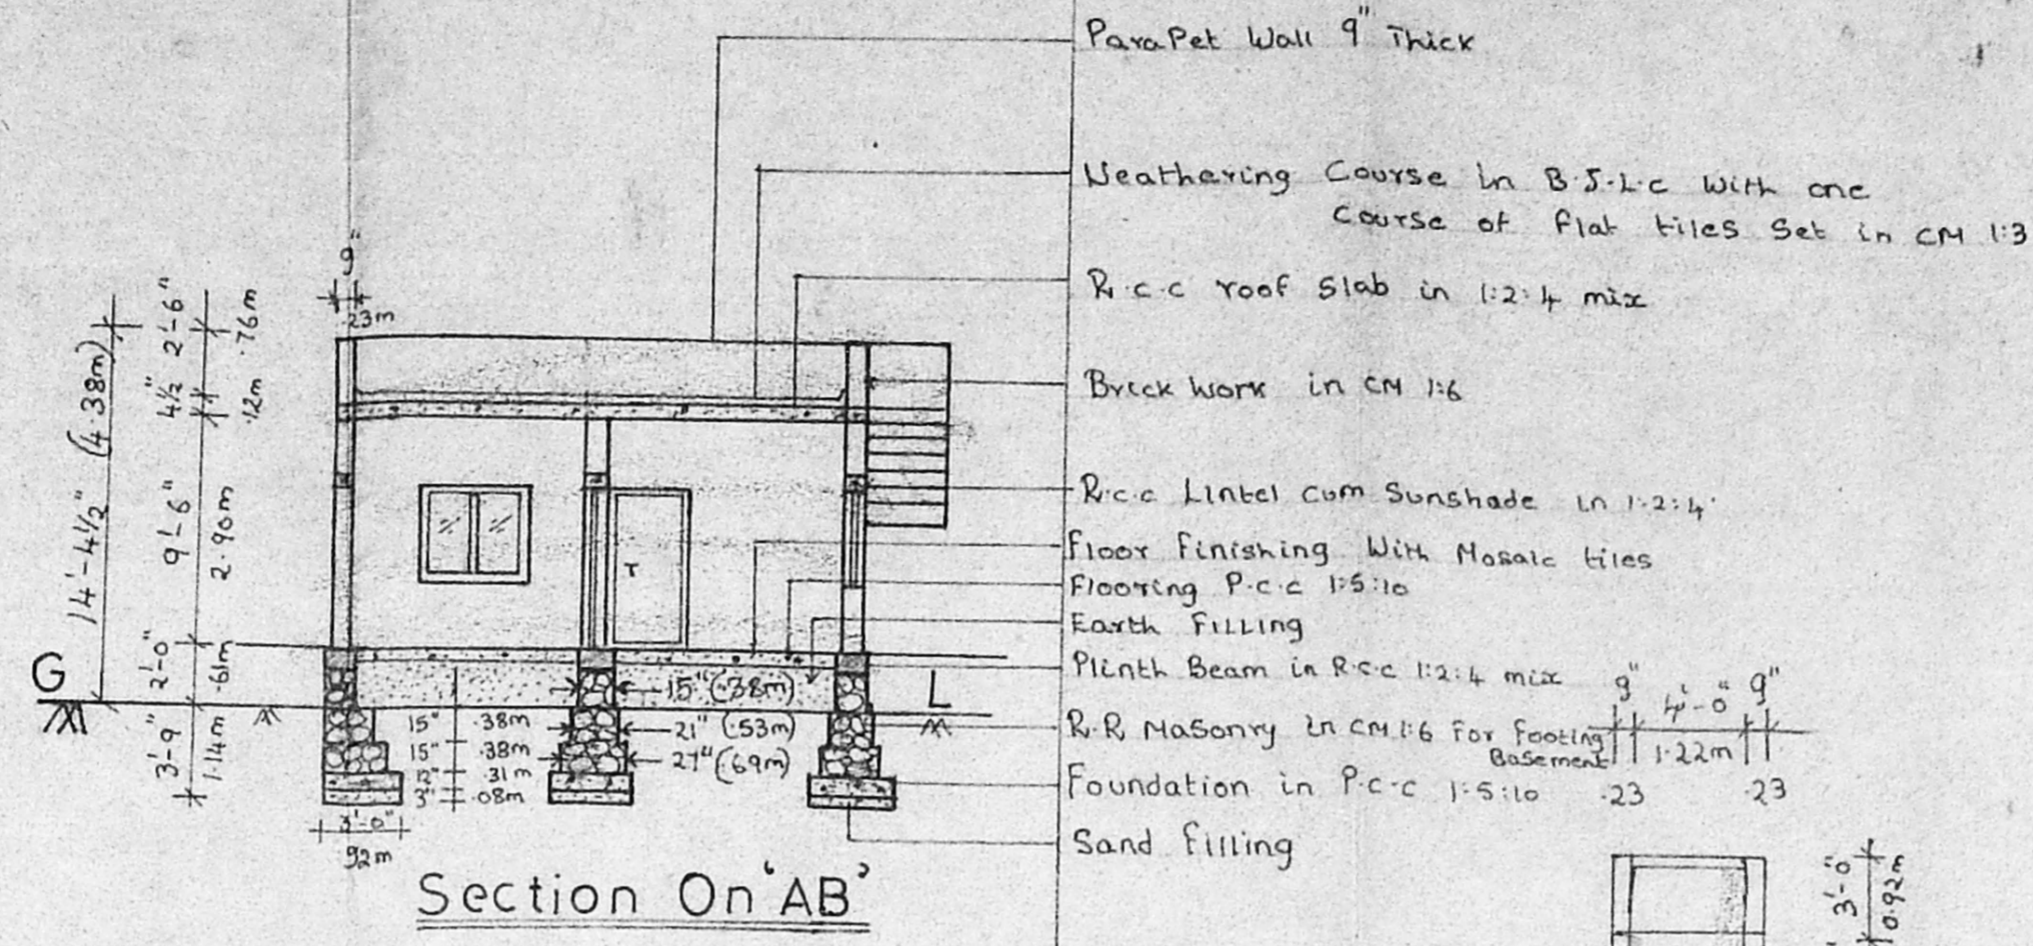 ParaPet Wall 9" Thick
Weathering Course in B.J.L.C With one
Course of flat tiles Set in CM 1:3
R.c.c roof Slab in 1:2:4 mix
Brick Work in CM 1:6
R.c.c Lintel cum Sunshade in 1:2:4
Floor Finishing With Mosaic tiles
Flooring P.c.c 1:5:10
Earth Filling
Plinth Beam in R.c.c 1:2:4 mix
R.R Masonry in CM 1:6 For Footing
Basement
Foundation in P.c.c 1:5:10
Sand Filling
9"
.23m
14'-4½" (4.38m)
2'-6"
.76m
4½"
.12m
9'-6"
2.90m
2'-0"
.61m
3'-9"
1.14m
G
L
T
15" (.38m)
21" (.53m)
27" (.69m)
15" .38m
15" .38m
12" .31m
3" .08m
3'-0"
92m
9" 4'-0" 9"
1.22m
.23 .23
3'-0"
0.92m
Section On 'AB'